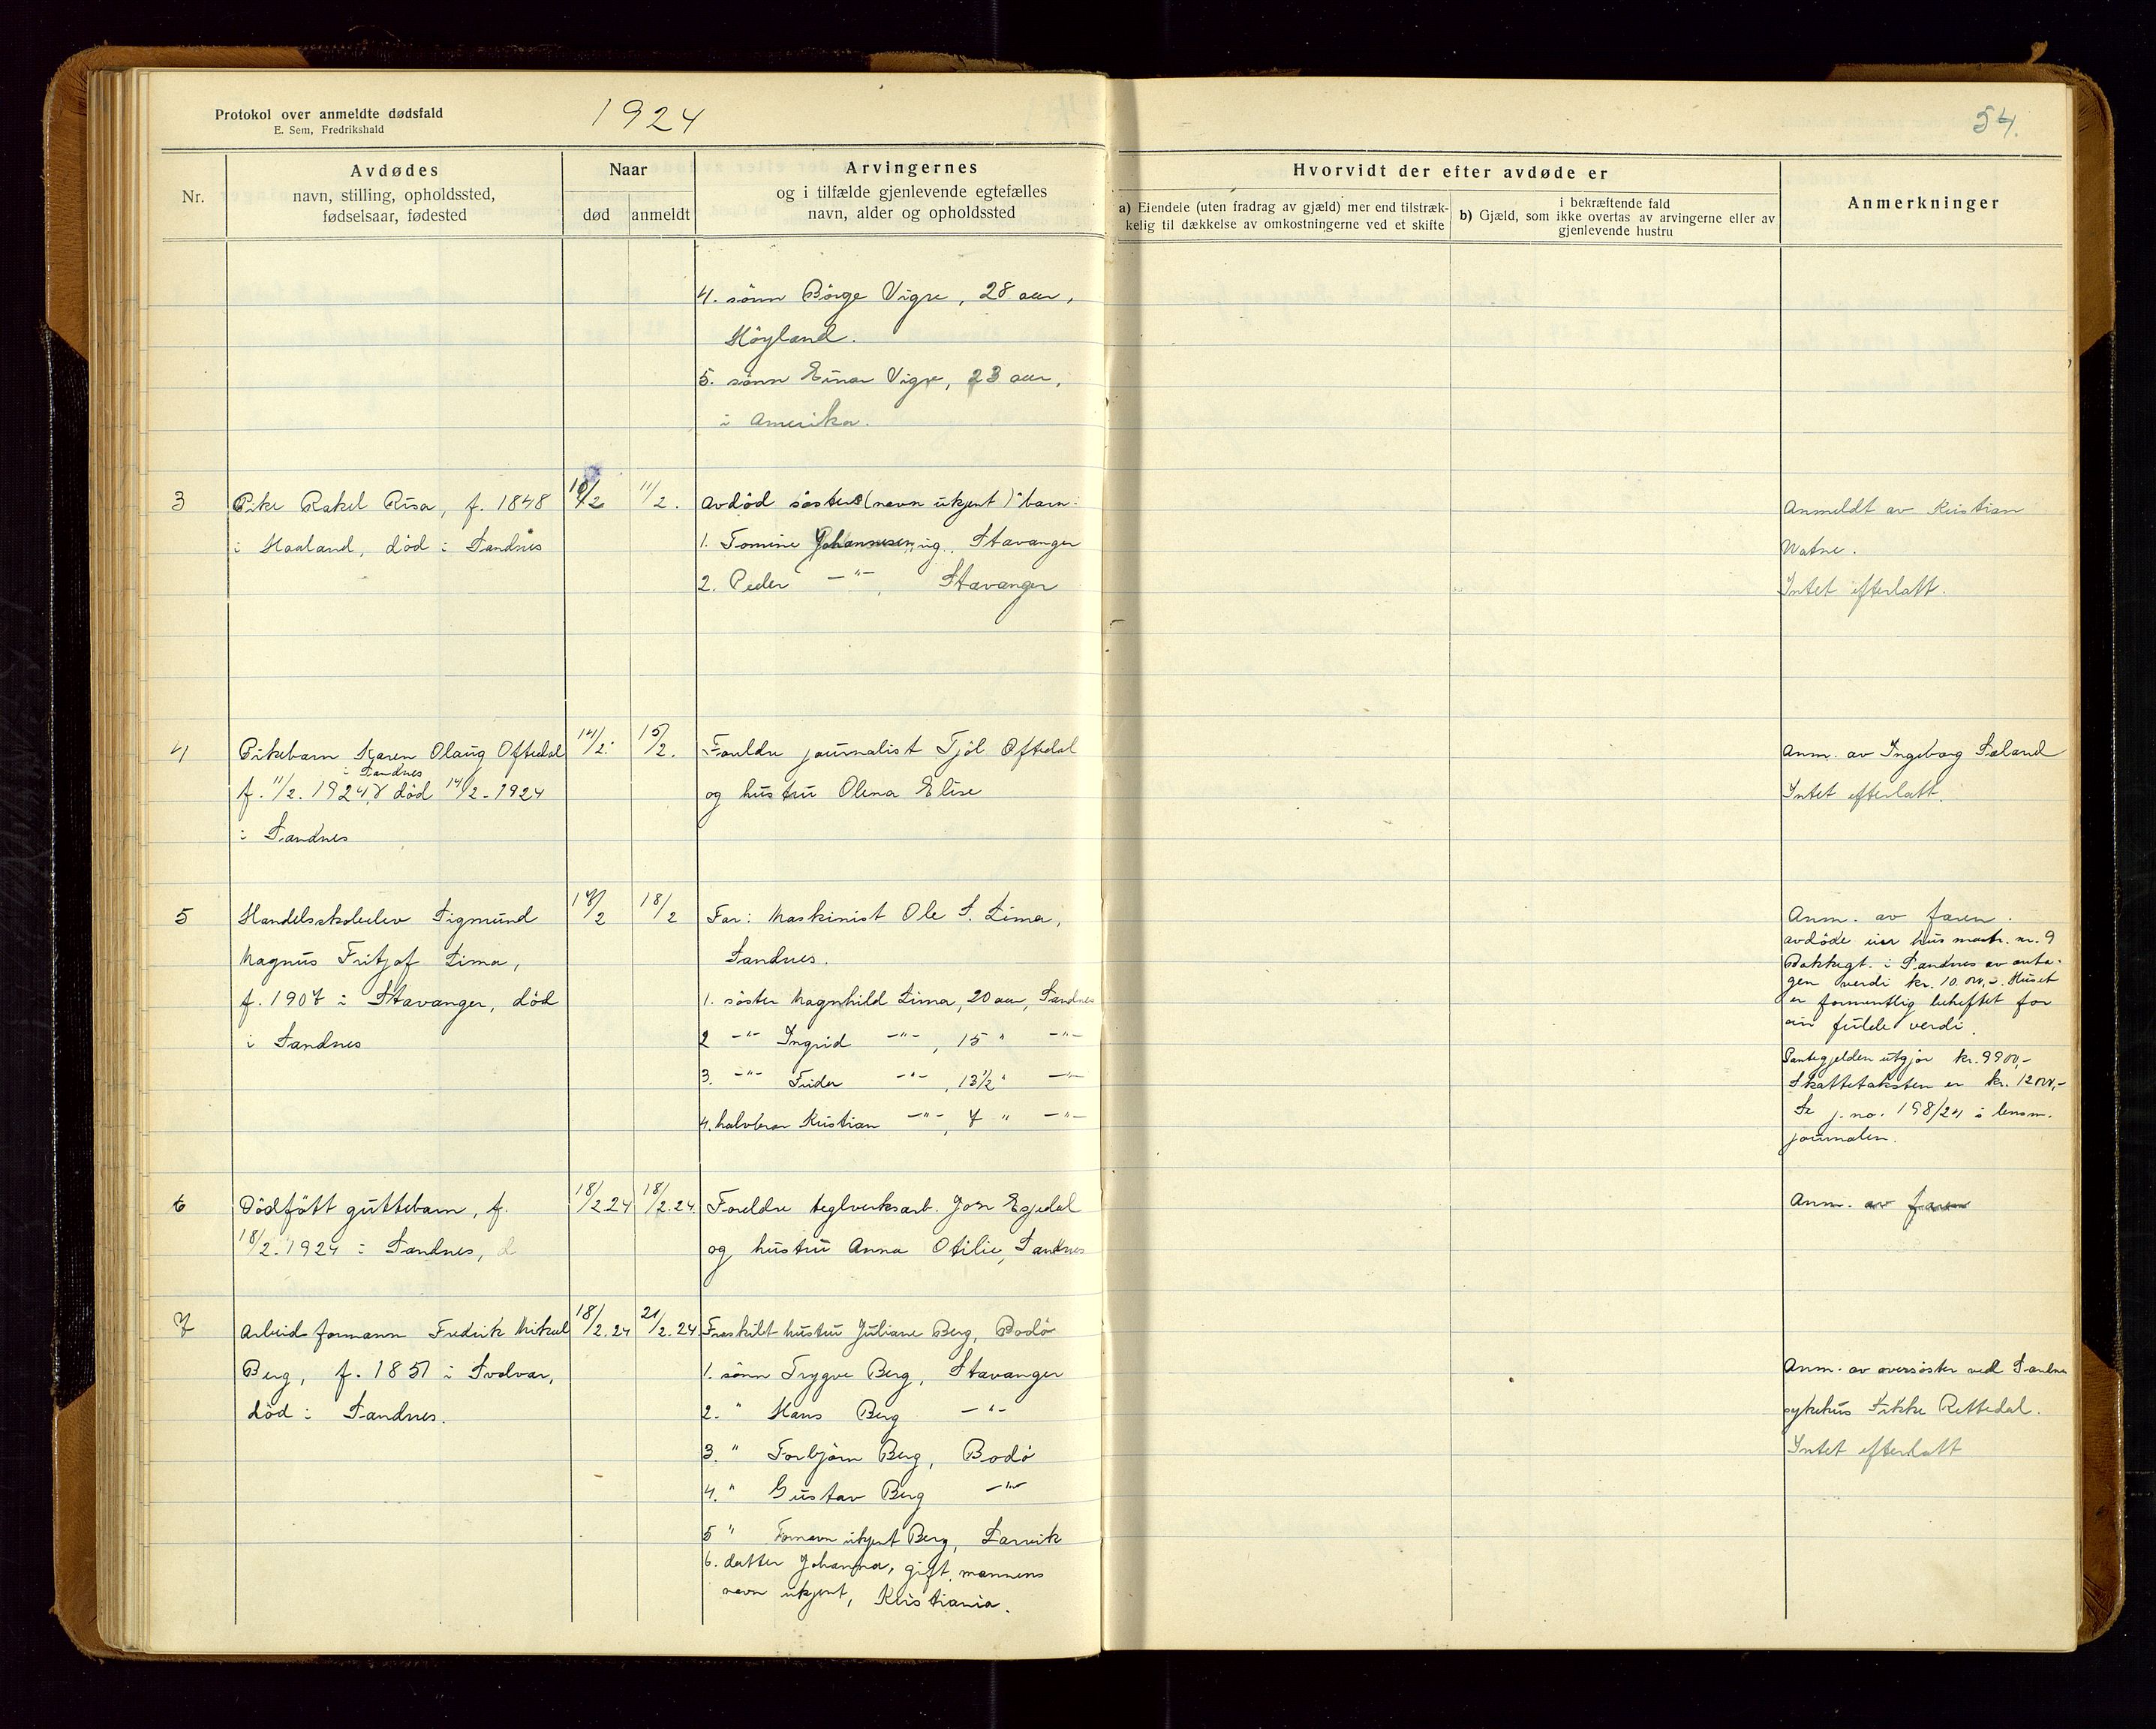 Protokol over anmeldte dødsfald
E. Sem, Fredrikshald
1924
54.
Nr.
Avdødes
navn, stilling, opholdssted,
fødselsaar, fødested
Naar
død
anmeldt
Arvingernes
og i tilfælde gjenlevende egtefælles
navn, alder og opholdssted
Hvorvidt der efter avdøde er
a) Eiendele (uten fradrag av gjæld) mer end tilstræk-
kelig til dækkelse av omkostningerne ved et skifte
i bekræftende fald
b) Gjæld, som ikke overtas av arvingerne eller av
gjenlevende hustru
Anmerkninger
4. sönn Börge Vigre, 28 aar,
Höyland.
5. sönn Einar Vigre, 23 aar,
i Amerika.
3
Pike Rakel Risa, f. 1848
i Haaland, död i Sandnes
10/2
11/2.
Avdöd sösters (navn ukjent) barn:
1. Tomine Johannesen, ug. Stavanger
2. Peder -"- , Stavanger
Anmeldt av Kristian
Watne.
Intet efterlatt.
4
Pikebarn Karen Olaug Oftedal
i Sandnes
f. 11/2. 1924, död 14/2-1924
i Sandnes
14/2.
15/2.
Foreldre journalist Tjöl Oftedal
og hustru Olena Elise
Anm. av Ingeborg Søland
Intet efterlatt.
5
Handelsskoleelev Sigmund
Magnus Fritjof Lima,
f. 1907 i Stavanger, död
i Sandnes
17/2
18/2
Far: Maskinist Ole S. Lima,
Sandnes.
1. söster Magnhild Lima, 20 aar, Sandnes
2 -"- Ingrid -"- , 15 " -"-
3. -"- Frida -"- , 13½ " -"-
4. halvbror Kristian -"- , 7 " -"-
Anm. av faren.
avdöde eier hus matr. nr. 9
Bakkegt. i Sandnes av anta-
gen verdi kr. 10.000,-. Huset
er formentlig beheftet for
sin fulde verdi.
Pantegjelden utgjör kr. 9900,-
Skattetaksten er kr. 12000,-
Se j.no. 198/24 i lensm.
journalen.
6
Dödfött guttebarn, f.
18/2. 1924 i Sandnes, d
18/2.24
18/2.24.
Foreldre teglverksarb. Jon Egjedal
og hustru Anna Otilie, Sandnes
Anm. av faren
7
Arbeidsformann Fredrik Mikal
Berg, f. 1851 i Svolvær,
död i Sandnes.
18/2.24
21/2.24
Fraskilt hustru Juliane Berg, Bodö
1. sönn Trygve Berg, Stavanger
2. " Hans Berg -"-
3. " Torbjörn Berg, Bodö
4. " Gustav Berg -"-
5 " Fornavn ukjent Berg, Larvik
6. datter Johanna, gift, mannens
navn ukjent, Kristiania.
Anm. av oversöster ved Sandnes
sykehus Sikke Rettedal.
Intet efterlatt